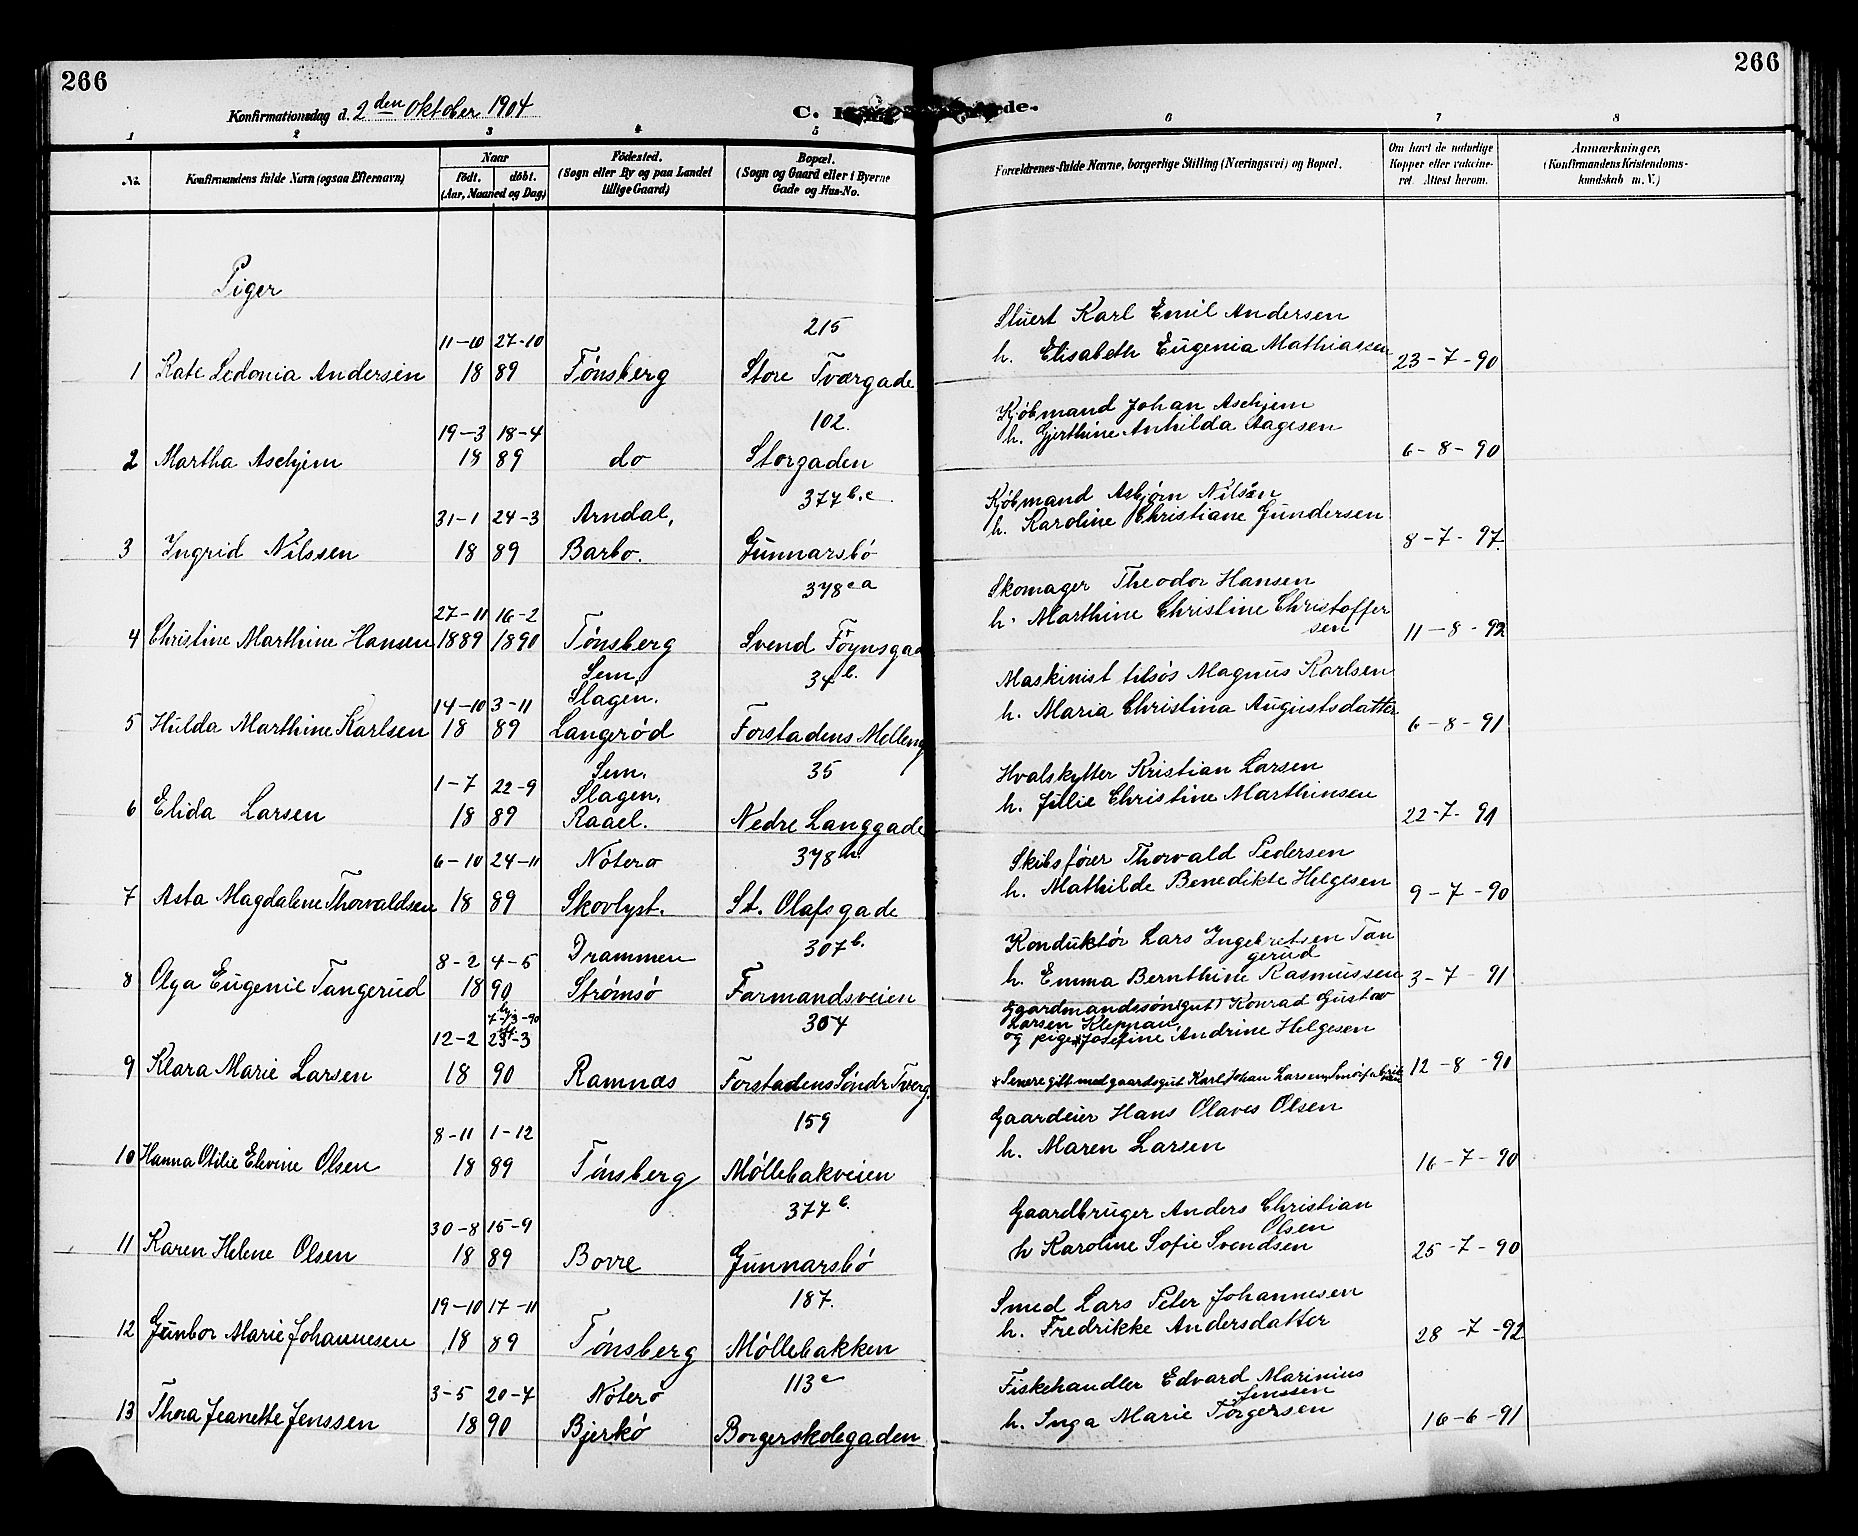 266
266
Konfirmationsdag d. 2den Oktober 1904
C.
1 2 3 4 5 6 7 8
No.
Konfirmandens fulde Navn (ogsaa Efternavn)
Naar
födt. döbt.
(Aar, Maaned og Dag)
Födested.
(Sogn eller By og paa Landet
tillige Gaard)
Bopæl.
(Sogn og Gaard eller i Byerne
Gade og Hus-No.
Forældrenes fulde Navne, borgerlige Stilling (Næringsvei) og Bopæl.
Om havt de naturlige
Kopper eller vaksine-
ret. Attest herom.
Anmærkninger,
(Konfirmandens Kristendoms-
kundskab m. V.)
Piger
215 Stuert Karl Emil Andersen
11-10 27-10 h. Elisabeth Eugenia Mathiassen
1 Kate Ledonia Andersen 18 89 Tønsberg Store Tværgade 23-7-90
102. Kjøbmand Johan Aschjem
19-3 18-4 h. Gjerthine Anhilda Aagesen
2 Martha Aschjem 18 89 do Storgaden 6-8-90
377 b.c. Kjøbmand Asbjørn Nilsen
31-1 24-3 Arndal, h. Karoline Christiane Gundersen
3 Ingrid Nilssen 18 89 Barbo. Gunnarsbø 8-7-97.
378 c a Skomager Theodor Hansen
27-11 16-2 h. Marthine Christine Christoffer
sen
4 Christine Marthine Hansen 1889 1890 Tønsberg Svend Föynsgad 11-8-92
Sem, 34 b. Maskinist tilsøs Magnus Karlsen
14-10 3-11 Slagen. h. Maria Christina Augustsdatter
5 Hulda Marthine Karlsen 18 89 Langerød Forstadens Melleng 6-8-91
Sem, 35 Hvalskytter Kristian Larsen
1-7 22-9 Slagen, h. Julie Christine Marthinsen
6 Elida Larsen 18 89 Raael. Nedre Langgade 22-7-91
6-10 24-11 Nøtero 378 m. Skibsfører Thorvald Pedersen
h. Mathilde Benedikte Helgesen
7 Asta Magdalene Thorvaldsen 18 89 Skovlyst. St. Olafsgade 9-7-90
Drammen 307 b. Konduktør Lars Ingebretsen Tan
gerud
8-2 4-5 h. Emma Bernthine Rasmussen
8 Olga Eugenie Tangerud 18 90 Strømsø Farmandsveien 3-7-91
7-3-90 304 Ggardmandssøn (gut) Konrad Gustav
Larsen Kleppau
12-2 23-3 og pige *Josefine Andrine Helgesen
9 Klara Marie Larsen 18 90 Ramnæs Forstadens Søndr Tverg. 12-8-90
* Senere gift med gaardsgut Karl Johan Larsen,
159 Gaardeier Hans Olaves Olsen
8-11 1-12 h. Maren Larsen
10 Hanna Otilie Elevine Olsen 18 89 Tønsberg Møllebakveien 16-7-90
377 b. Gaardbruger Anders Christian
Olsen
30-8 15-9 h Karoline Sofie Svendsen
11 Karen Helene Olsen 18 89 Borre Gunnarsbø 25-7-90
187. Smed Lars Peter Johannesen
19-10 17-11 h. Fredrikke Andersdatter
12 Gunbor Marie Johannesen 18 89 Tønsberg Møllebakken 28-7-92
113 c Fiskehandler Edvard Marinius
Jenssen
3-5 20-7 Nøterø h. Inga Marie Torgersen
13 Thora Jeanette Jenssen 18 90 Bjerkø Borgerskolegaden 16-6-91